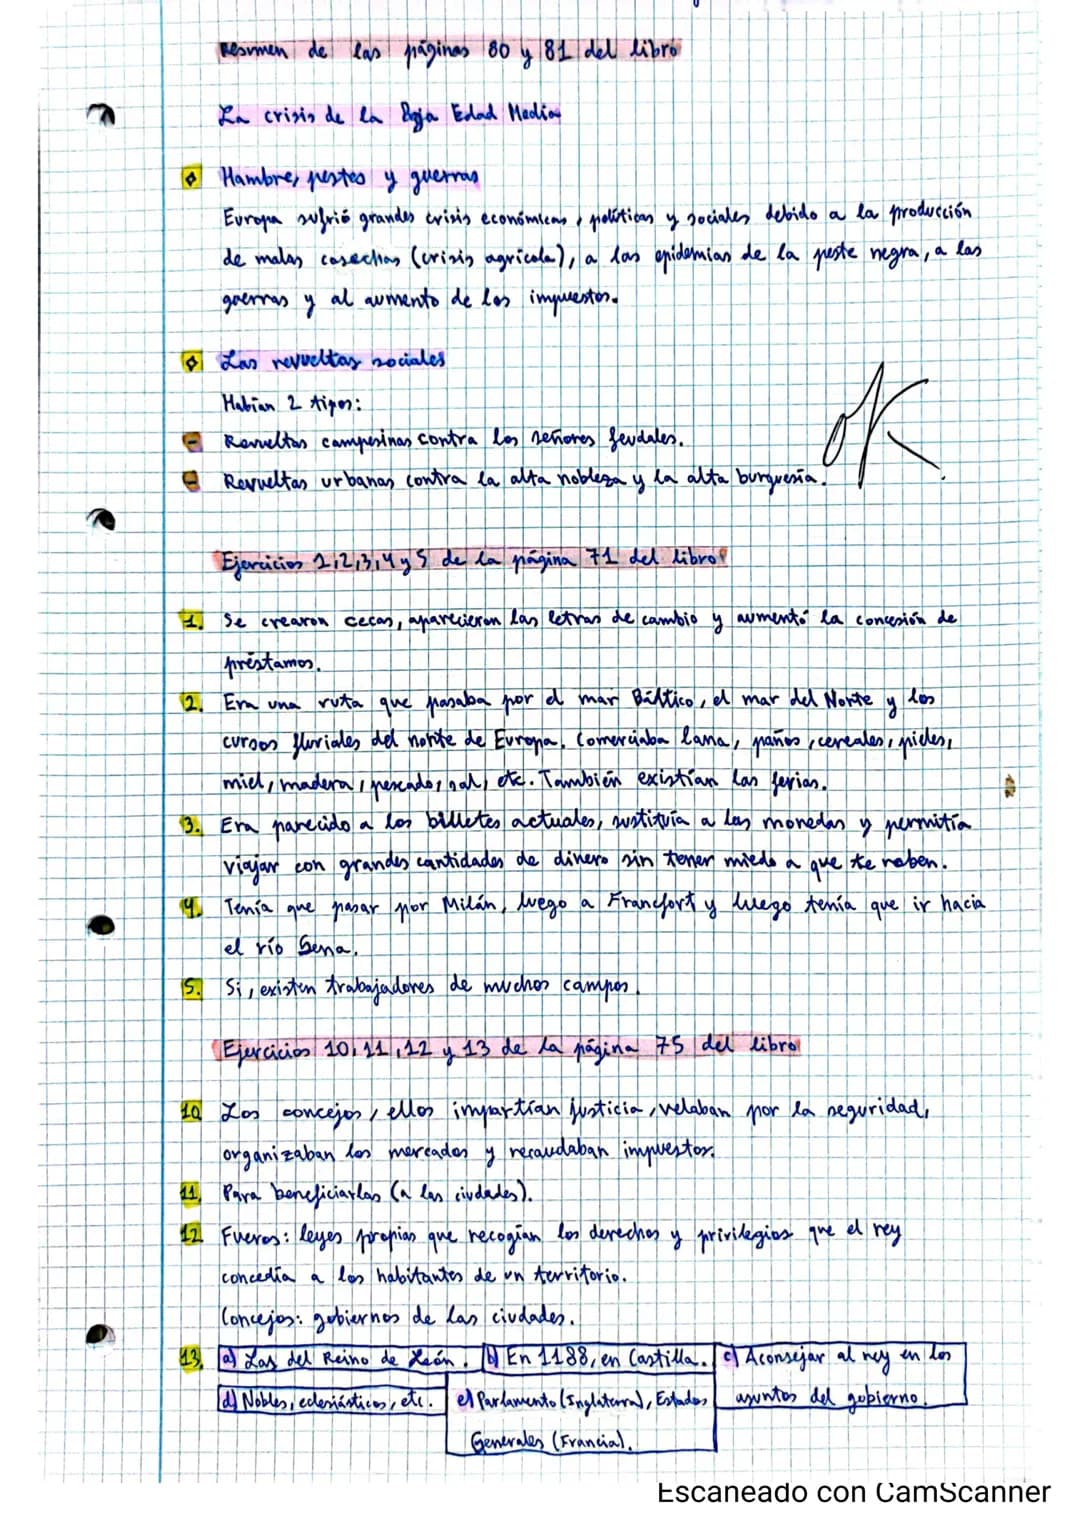 Resumen de las páginas 80 y 81 del libro
La crisis de la Baja Edad Media
Hambre, pestes y guerras
Europa sufrió grandes crisis económicas, políticas y sociales debido a la producción
de malas cosechas (crisis agrícola), a las epidemias de la peste negra, a las
guerras y al aumento de los impuestos.
Las revueltas sociales
Habían 2 tipos:
- Revueltas campesinas contra los señores feudales.
- Revueltas urbanas contra la alta nobleza y la alta burguesía.
OK
Ejercicios 1,2,3,4 y 5 de la página 71 del libro
1. Se crearon cecas, aparecieron las letras de cambio y aumentó la concesión de
préstamos.
2. Era una ruta que pasaba por el mar Báltico, el mar del Norte y los
cursos fluviales del norte de Europa. Comerciaba lana, paños, cereales, pieles,
miel, madera, pescado, sal, etc. También existían las ferias.
3. Era parecido a los billetes actuales, sustituía a las monedas y permitía
viajar con grandes cantidades de dinero sin tener miedo a que te roben.
4. Tenía que pasar por Milán, luego a Francfort y luego tenía que ir hacia
el río Sena.
5. Si, existen trabajadores de muchos campos.
Ejercicios 10, 11, 12 y 13 de la página 75 del libro
10 Los concejos, ellos impartían justicia, velaban por la seguridad,
organizaban los mercados y recaudaban impuestos.
11. Para beneficiarlas (a las ciudades).
12 Fueros: leyes propias que recogían los derechos y privilegios que el rey
concedía a los habitantes de un territorio.
Concejos: gobiernos de las ciudades.
13. a) Las del Reino de León. b) En 1188, en Castilla. c) Aconsejar al rey en los
asuntos del gobierno.
d) Nobles, eclesiásticos, etc. e) Parlamento (Inglaterra), Estados
Generales (Francia).
Escaneado con CamScanner